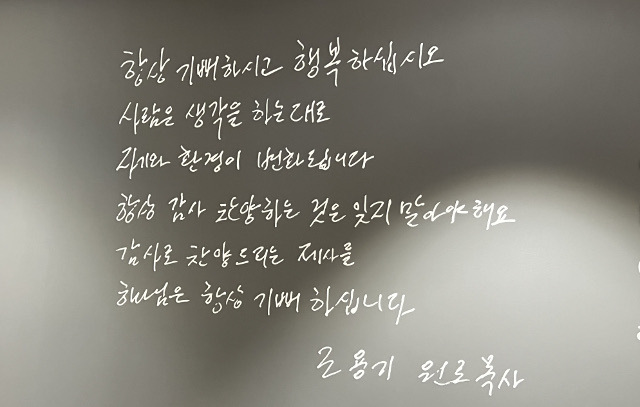 항상 기뻐하시고 행복하십시오
사람은 생각을 하는대로
자기와 환경이 변화됩니다
항상 감사 찬양하는 것은 잊지 말아야 해요
감사로 찬양드리는 제사를
하나님은 항상 기뻐 하십니다
조용기 원로목사